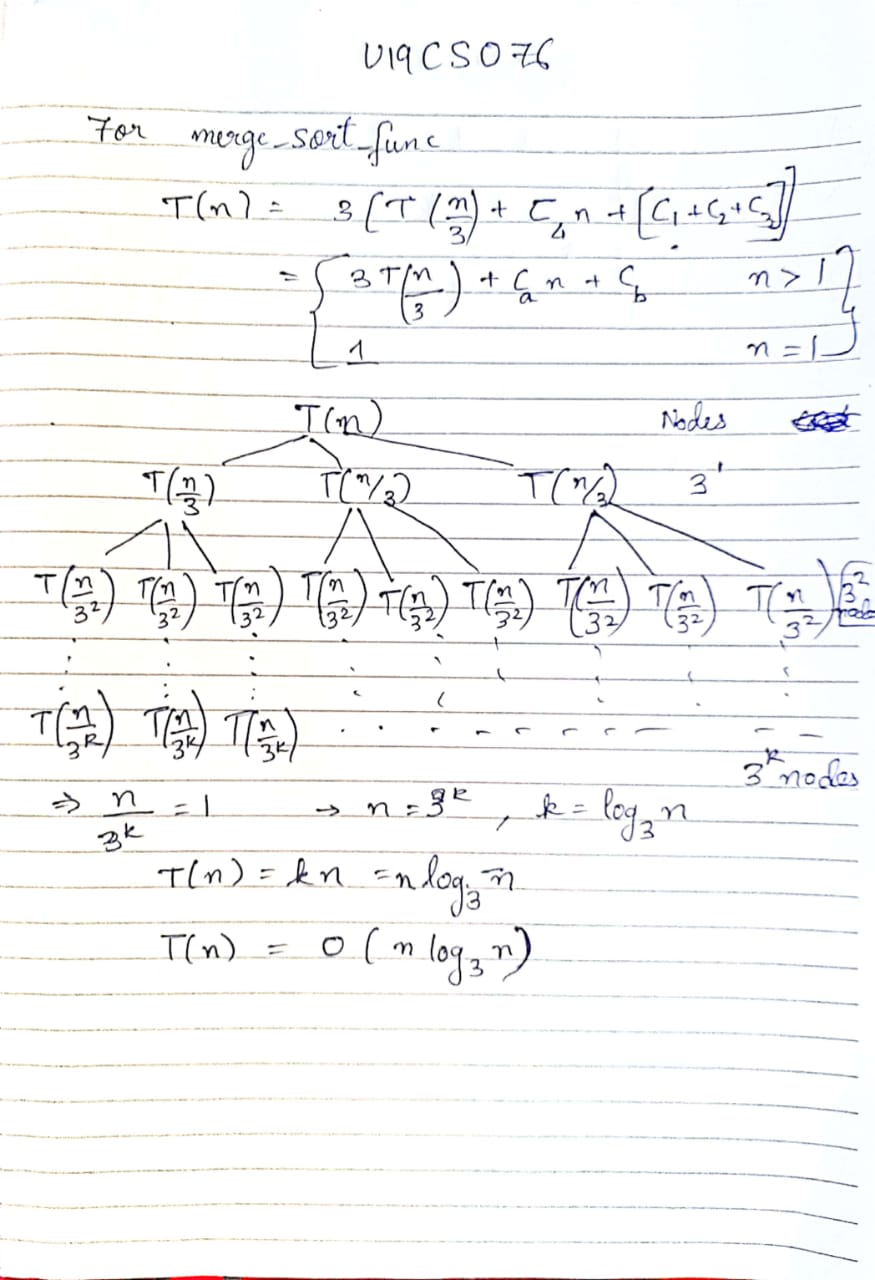 U19CS076
For merge_sort_func
T(n) = 3[T(n/3) + C₄n + [C₁+C₂+C₃]]
= { 3T(n/3) + Cₐn + C_b n > 1 }
1 n = 1
T(n) Nodes
T(n/3) T(n/3) T(n/3) 3¹
T(n/3²) T(n/3²) T(n/3²) T(n/3²) T(n/3²) T(n/3²) T(n/3²) T(n/3²) T(n/3²) 3² nodes
T(n/3ᵏ) T(n/3ᵏ) T(n/3ᵏ) . . . - - - - - - -
3ᵏ nodes
⇒ n/3ᵏ = 1 → n = 3ᵏ , k = log₃n
T(n) = kn = n log₃ n
T(n) = O(n log₃ n)